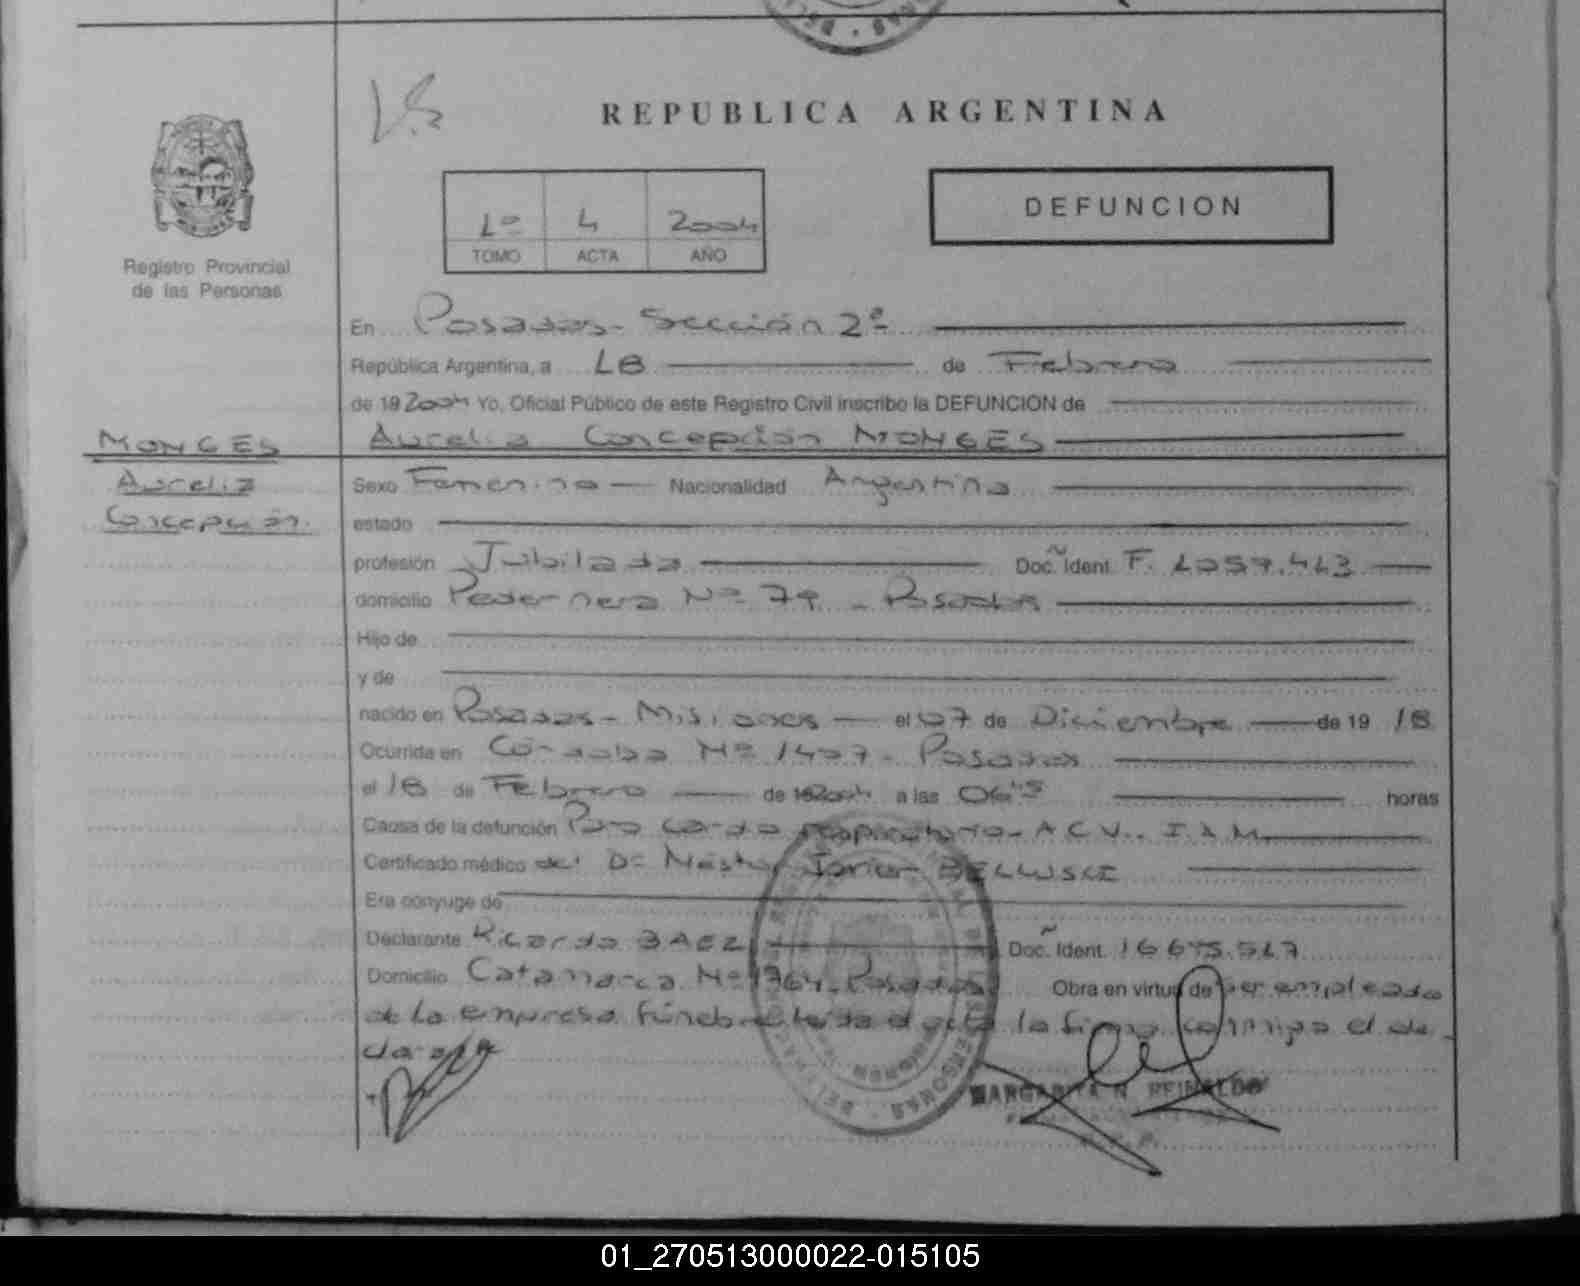 REPUBLICA ARGENTINA
1º 4 2004
TOMO ACTA AÑO
DEFUNCION
Registro Provincial
de las Personas
En Posadas - Sección 2ª
República Argentina, a 18 de Febrero
de 19 2004 Yo, Oficial Público de este Registro Civil inscribo la DEFUNCION de
MONGES
Aurelia Concepción MONGES
Aurelia
Concepción
Sexo Femenino Nacionalidad Argentina
estado
profesión Jubilada Doc. Ident. F. 1059.413
domicilio Pedernera Nº 79 - Posadas
Hijo de
y de
nacido en Posadas - Misiones el 07 de Diciembre de 19 18
Ocurrida en Córdoba Nº 1407 - Posadas
el 18 de Febrero de 2004 a las 06 horas
Causa de la defunción Paro cardio respiratorio - A.C.V.. I.A.M.
Certificado médico del Dr Néstor Javier
Era cónyuge de
Declarante Ricardo BAEZ Doc. Ident. 16 675.517
Domicilio Catamarca Nº 1964 - Posadas Obra en virtud de ser empleado
de la empresa fúnebre leída el acta la firma conmigo el de
clarante
MARGARITA N. REINALDO
01_270513000022-015105